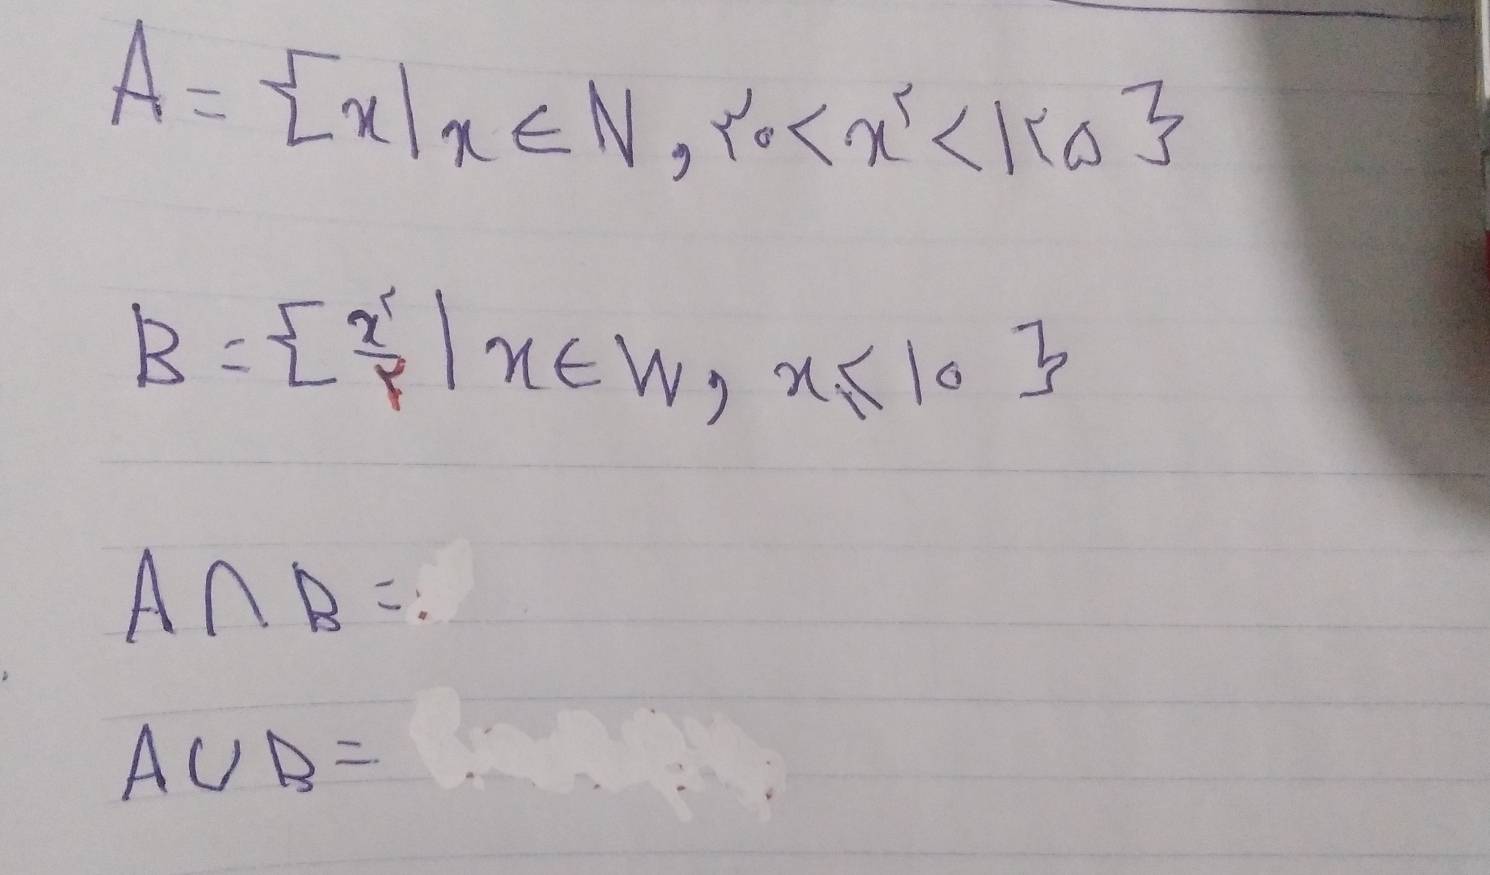 A = {x | x ∈ N , ۲۰ < x^۲ < ۱۲۵ }
B = { x^۲/۲ | x ∈ W , x ≤ ۱۰ }
A ∩ B =
A ∪ B =